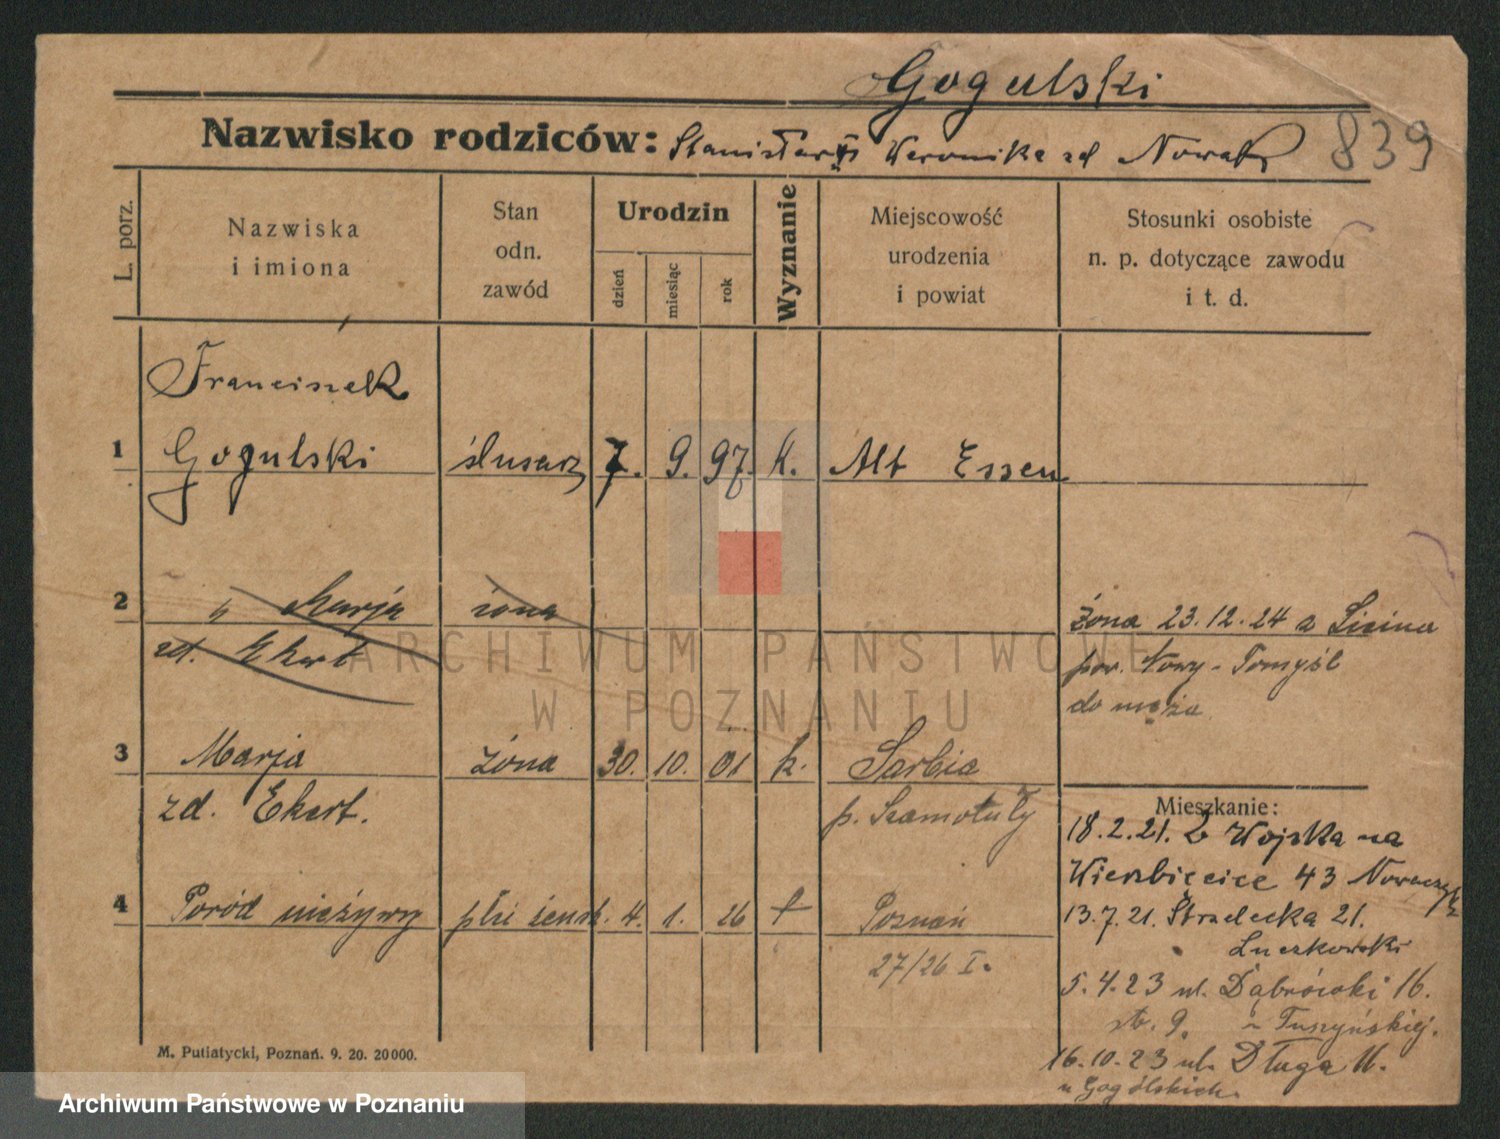 Gogulski
Nazwisko rodziców: Stanisław i Weronika zd Nowak
839
L. porz.
Nazwiska
i imiona
Stan
odn.
zawód
Urodzin
dzień
miesiąc
rok
Wyznanie
Miejscowość
urodzenia
i powiat
Stosunki osobiste
n. p. dotyczące zawodu
i t. d.
Franciszek
1 Gogulski ślusarz 7. 9. 97. k. Alt Essen
2 " Marja żona
zd. Ekert
żona 23.12.24 z Sicina
pow. Nowy-Tomyśl
do męża
3 Marja żona 30. 10. 01 k. Sarbia
zd. Ekert. p. Szamotuły
4 Poród nieżywy płci żensk. 4. 1. 26 Poznań
27/26 I.
Mieszkanie:
18.2.21. Z Wojska na
Wierzbięcice 43
13.7.21. Strzelecka 21.
Luczkowski
5.4.23 ul. Dąbrówki 16.
str. 9. u Tuszyńskiej.
16.10.23 ul. Długa 11.
u Gogólskich.
M. Putiatycki, Poznań. 9. 20. 20000.
ARCHIWUM PAŃSTWOWE
W POZNANIU
Archiwum Państwowe w Poznaniu